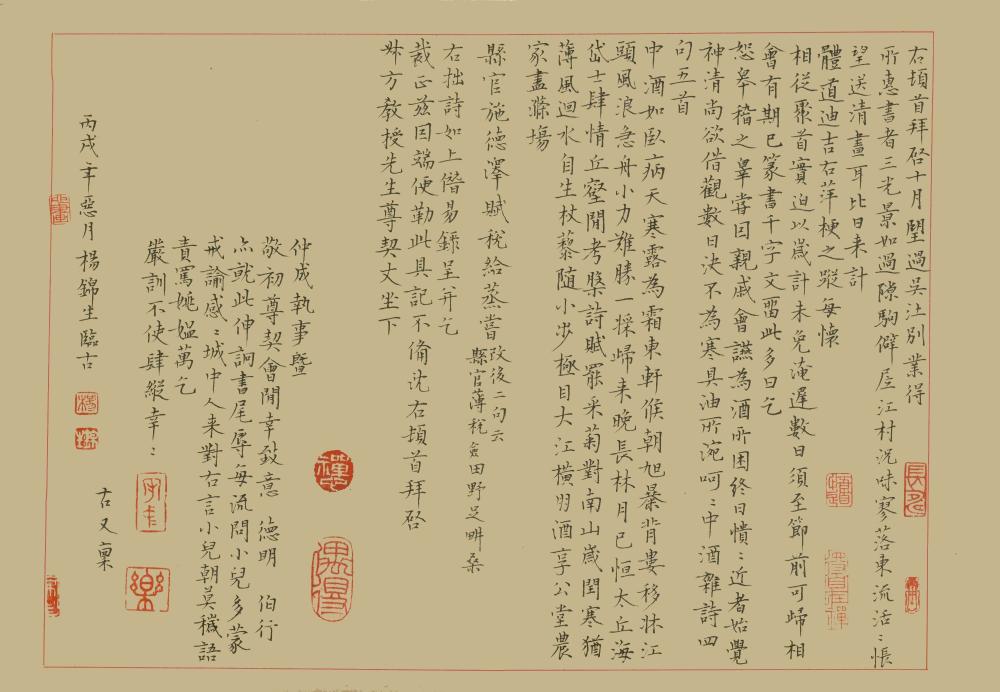 右頓首拜啓十月間過吳江別業得
所惠書者三光景如過隙駒僻居江村況味寥落東流活〻悵
望送清晝耳比日来計
體道迪吉右萍梗之蹤每懷
相従聚首實迫以歲計未免淹遲數日須至節前可歸相
會有期已篆書千字文畱此多日乞
恕皋稽之辠嘗因親戚會讌為酒所困終日憒〻近者始覺
神清尚欲借觀數日決不為寒具油所涴呵〻中酒雜詩四
句五首
中酒如臥病天寒露為霜東軒候朝旭暴背婁移牀江
頭風浪急舟小力難勝一採歸来晚長林月已恒太丘海
岱士肆情丘壑閒考槃詩賦罷采菊對南山歲閏寒猶
薄風迴水自生杖藜随小步極目大江橫朋酒享公堂農
家盡滌場
縣官施德澤賦稅給蒸嘗 改後二句云 縣官薄稅 田野足畊桑
右拙詩如上僭易錄呈并乞
裁正茲因端便勒此具記不備沈右頓首拜啓
方教授先生尊契丈坐下
仲成執事暨
敬初尊契會閒幸致意 德明 伯行
亦就此伸訶書尾辱每流問小兒多蒙
戒諭感〻城中人来對右言小兒朝莫穢語
責罵姚媼萬乞
嚴訓不使肆縱幸〻
右又稟
丙戌年惡月楊錦生臨古